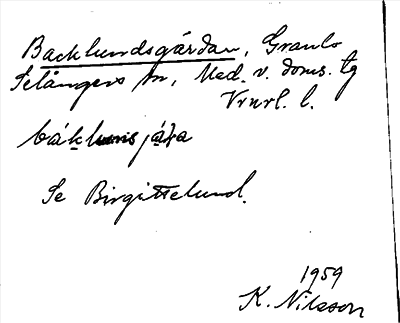 Backlundsgårdan, Granlo
Selångers sn, Med. v. doms. tg
Vrurl. l.
Se Birgittelund.
1959
K. Nilsson